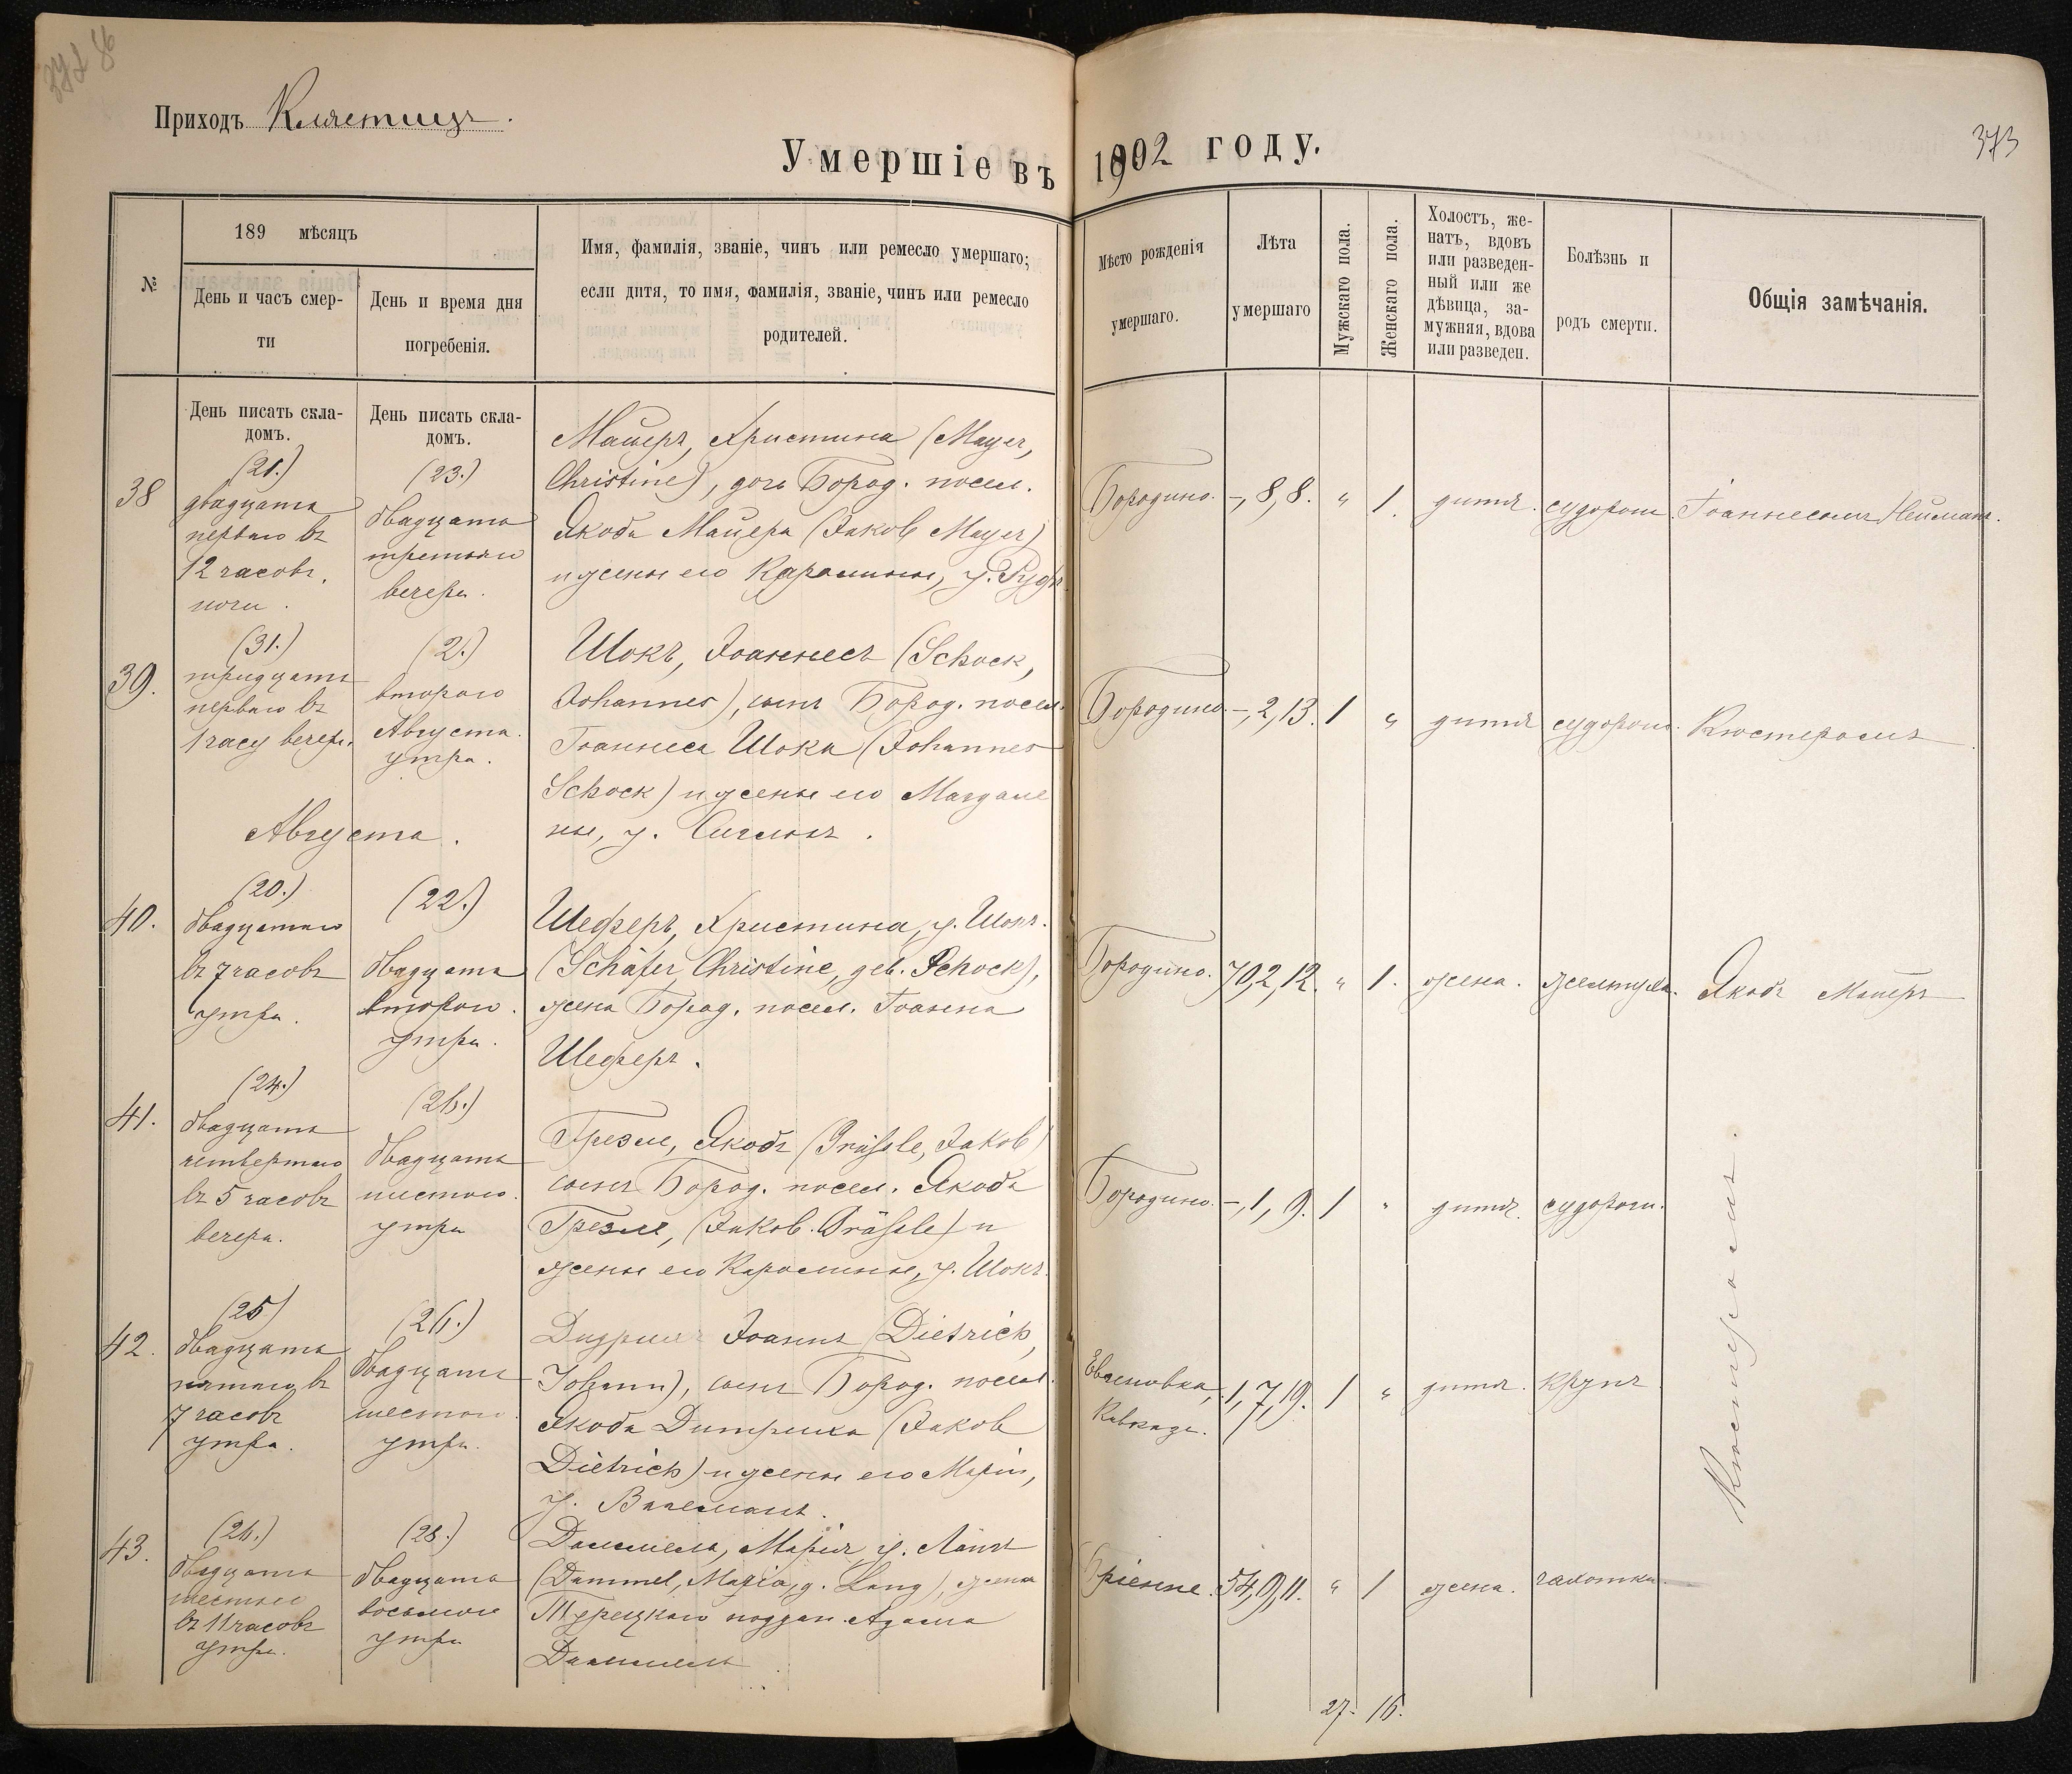 Приходъ Клястицъ.
Умершіе въ 1902 году.
373
№
189 мѣсяцъ
День и часъ смер-
ти
День и время дня
погребенія.
Имя, фамилія, званіе, чинъ или ремесло умершаго;
если дитя, то имя, фамилія, званіе, чинъ или ремесло
родителей.
Мѣсто рожденія
умершаго.
Лѣта
умершаго
Мужскаго пола.
Женскаго пола.
Холостъ, же-
натъ, вдовъ
или разведен-
ный или же
дѣвица, за-
мужняя, вдова
или разведен.
Болѣзнь и
родъ смерти.
Общія замѣчанія.
День писать скла-
домъ.
День писать скла-
домъ.
38
(21.)
двадцать
перваго въ
12 часовъ
ночи.
(23.)
двадцать
третьяго
вечера.
Майеръ, Христина (Mayer,
Christine), дочь Бород. посел.
Якоба Майера (Jakob Mayer)
и жены его Каролины, у. Руфъ
Бородино.
-, 8, 8.
"
1.
дитя.
судороги.
Іоаннесомъ Нейманъ.
39.
(31.)
тридцать
перваго въ
1 часу вечера.
(2.)
второго
Августа.
утра.
Шокъ, Іоаннесъ (Schock,
Johannes), сынъ Бород. посел.
Іоаннеса Шока (Johannes
Schock) и жены его Магдале
ны, у.
Бородино.
-, 2, 13.
1
"
дитя
судороги.
Кюстеромъ
Августа.
40.
(20.)
двадцатаго
въ 7 часовъ
утра.
(22.)
двадцать
второго.
утра.
Шеферъ, Христина, у. Шокъ.
(Schäfer, Christine, geb. Schock),
жена Бород. посел. Іоанна
Шеферъ.
Бородино.
70, 2, 12.
"
1.
жена.
желтуха.
Якобъ Майеръ
41.
(24.)
двадцать
четвертаго
въ 5 часовъ
вечера.
(26.)
двадцать
шестого.
утра
Грезле, Якобъ (Gräßle, Jakob)
сынъ Бород. посел. Якоба
Грезле, (Jakob Gräßle) и
жены его Каролины, у. Шокъ.
Бородино.
-, 1, 9.
1
"
дитя.
судороги.
Кюстеромъ.
42.
(25)
двадцать
пятаго въ
7 часовъ
утра.
(26.)
двадцать
шестого.
утра.
Дидрихъ Іоаннъ (Dietrich,
Johann), сынъ Бород. посел.
Якоба Дитриха (Jakob
Dietrich) и жены его Маріи,
у.
Кавказъ.
1, 7, 19.
1
"
дитя.
крупъ
43.
(26.)
двадцать
шестого
въ 11 часовъ
утра.
(28.)
двадцать
восьмого
утра
Даммель, Марія у. Лангъ
(Dammel, Maria, g. Lang), жена
Турецкаго поддан. Адама
Даммель
Бріенне.
54, 9, 11.
"
1
жена.
чахотка.
27. 16.